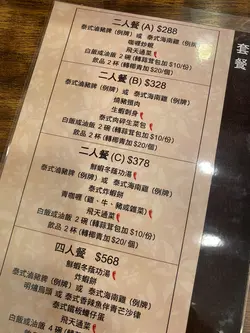 二人餐 (A) $288
泰式滷豬髀 (例牌) 或 泰式海南雞 (例牌)
咖喱炒蝦
飛天通菜
白飯或油飯 2 碗 (轉蒜茸包加 $10/份)
飲品 2 杯 (轉椰青加 $20/個)
二人餐 (B) $328
泰式滷豬髀 (例牌) 或 泰式海南雞 (例牌)
燒豬頸肉
生蝦刺身
泰式肉碎生菜包
白飯或油飯 2 碗 (轉蒜茸包加 $10/份)
飲品 2 杯 (轉椰青加 $20/個)
二人餐 (C) $378
鮮蝦冬蔭功湯
泰式滷豬髀 (例牌) 或 泰式海南雞 (例牌)
泰式炸蝦餅
青咖喱 (雞、牛、豬或雜菜)
飛天通菜
白飯或油飯 2 碗 (轉蒜茸包加 $10/份)
飲品 2 杯 (轉椰青加 $20/個)
四人餐 $568
鮮蝦冬蔭功湯
炸蝦餅
泰式滷豬髀 (例牌) 或 泰式海南雞 (例牌)
明爐烏頭 或 泰式香辣魚伴青芒沙律
泰式鐵板
飛天通菜
白飯或油飯
套餐